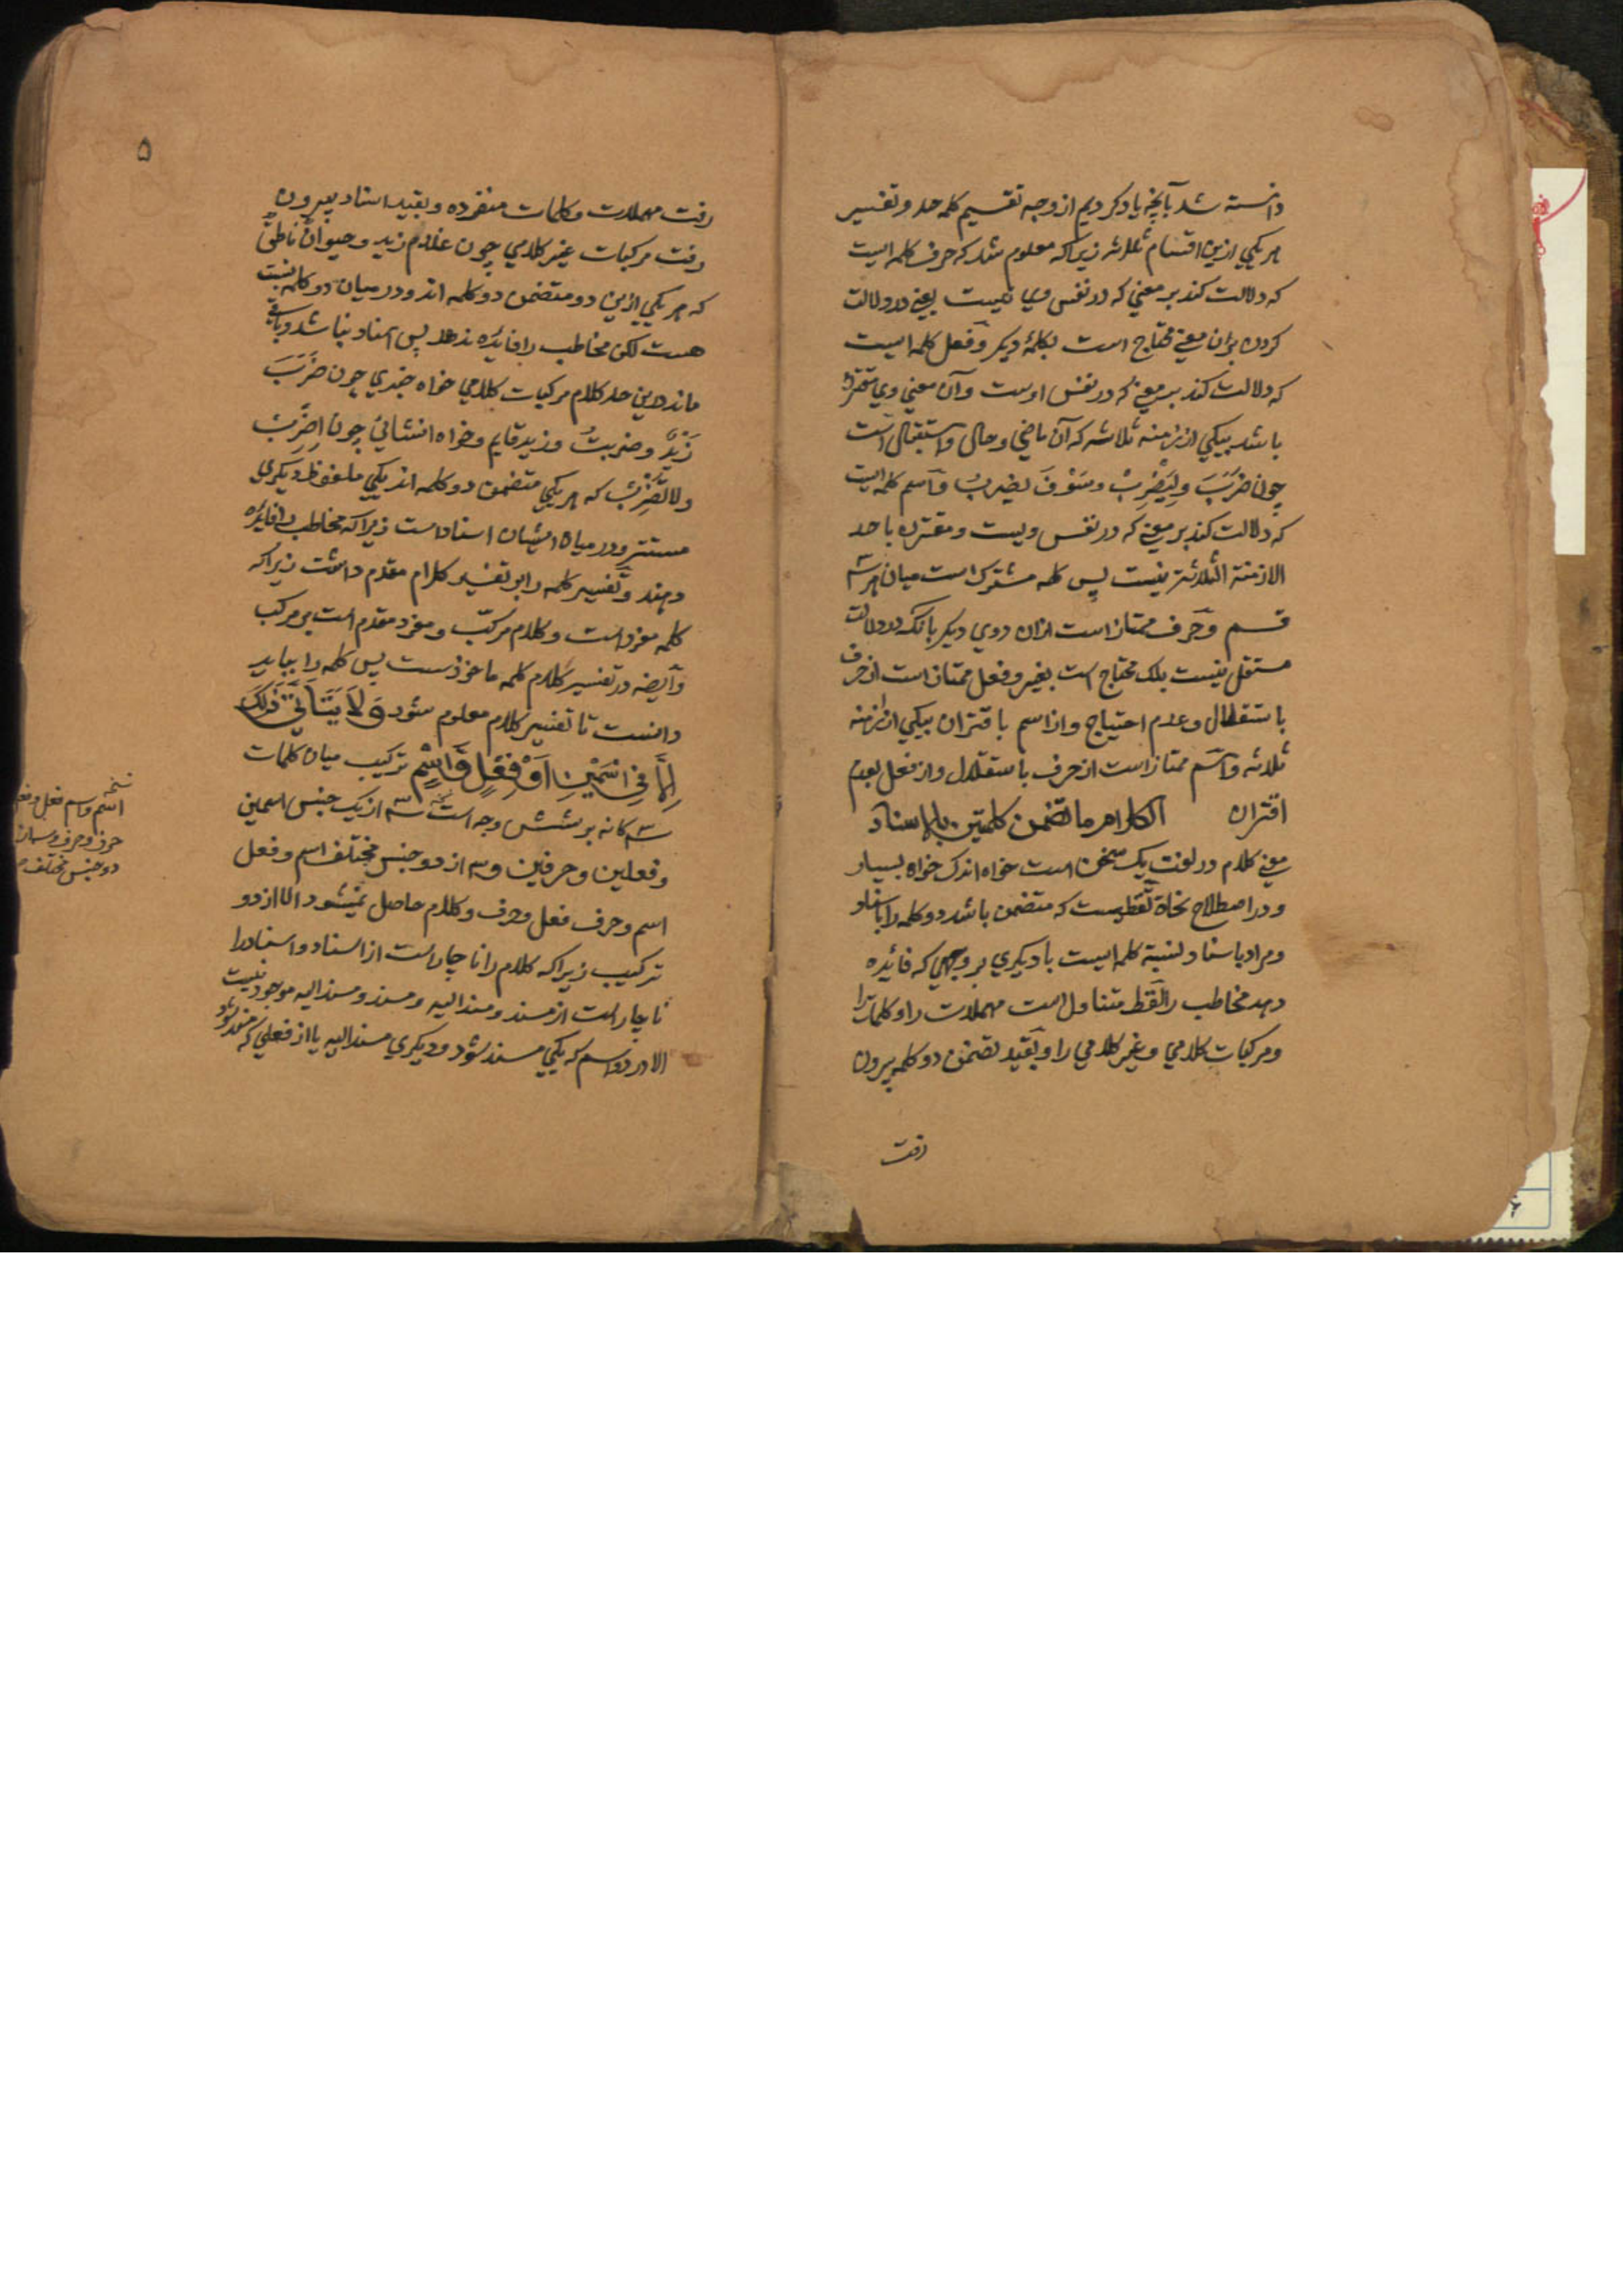 دانسته شد بآنچه یاد کردیم از وجه تقسیم کلمه حد و تفسیر
هر یکی ازین اقسام ثلثه زیراکه معلوم شد که حرف کلمه ایست
که دلالت کند بر معنی که در نفس وی نیست یعنی در دلالت
کردن بران معنی محتاج است بکلمهٔ دیکر و فعل کلمه ایست
که دلالت کند بر معنی که در نفس اوست و آن معنی وی مقترن
باشد بیکی از ازمنه ثلاثه که آن ماضی و حال و استقبال است
چون ضَرَبَ و لِیَضْرِبْ و سَوْفَ یضربُ و اسم کلمه ایست
که دلالت کند بر معنی که در نفس ویست و مقترن باحد
الازمنة الثلاثة نیست پس کلمه مشترک است میان هر سه
قسم و حرف ممتاز است ازان دوی دیکر بآنکه در دلالت
مستقل نیست بلک محتاج است بغیر و فعل ممتاز است از حرف
باستقلال و عدم احتیاج و از اسم باقتران بیکی از ازمنه
ثلاثه و اسم ممتاز است از حرف باستقلال و از فعل بعدم
اقتران الکلام ما تضمن کلمتین بالاسناد
یعنی کلام در لغت یک سخن است خواه اندک خواه بسیار
و در اصطلاح نحاة لفظیست که متضمن باشد دو کلمه را باسناد
و مراد باسناد نسبة کلمه ایست با دیکری بر وجهی که فائده
دهد مخاطب را لفظ متناول است مهملات را و کلمات را
و مرکبات کلامی و غیر کلامی را و بقید تضمن دو کلمه بیرون
رفت
۵
رفت مهملات و کلمات منفرده و بقید اسناد بیرون
رفت مرکبات غیر کلامی چون غلام زید و حیوانٌ ناطقٌ
که هر یکی ازین دو متضمن دو کلمه اند و در میان دو کلمه نسبت
هست لکن مخاطب را فائده ندهد پس اسناد نباشد و باقی
ماند درین حد کلام مرکبات کلامی خواه خبری چون ضَرَبَ
زَیْدٌ و ضربتُ و زید قایم و خواه انشائی چون اِضْرِبْ
و لا تَضْرِبْ که هر یکی متضمن دو کلمه اند یکی ملفوظ و دیکری
مستتر و در میان ایشان اسناد است زیراکه مخاطب را فایده
دهند و تفسیر کلمه را بر تفسیر کلام مقدم داشت زیراکه
کلمه مفرد است و کلام مرکب و مفرد مقدم است بر مرکب
و ایضا در تفسیر کلام کلمه ماخوذست پس کلمه را بباید
دانست تا تفسیر کلام معلوم شود وَ لَا یَتَأَتّیٰ ذٰلِکَ
اِلَّا فِی اسْمَیْنِ اَوْ فِعْلٍ وَّ اسْمٍ ترکیب میان کلمات
سه کانه بر شش وجه است سه از یک جنس اسمین
و فعلین و حرفین و سه از دو جنس مختلف اسم و فعل
اسم و حرف فعل و حرف و کلام حاصل نمیشود الا از دو
ترکیب زیراکه کلام را ناچار است از اسناد و اسناد را
ناچار است از مسند و مسند الیه و مسند و مسند الیه موجود نیست
الا در دو اسم که یکی مسند شود و دیکری مسند الیه یا از فعلی که مسند شود
نسخه
اسم و اسم فعل و فعل
حرف و حرف و سه از
دو جنس مختلف